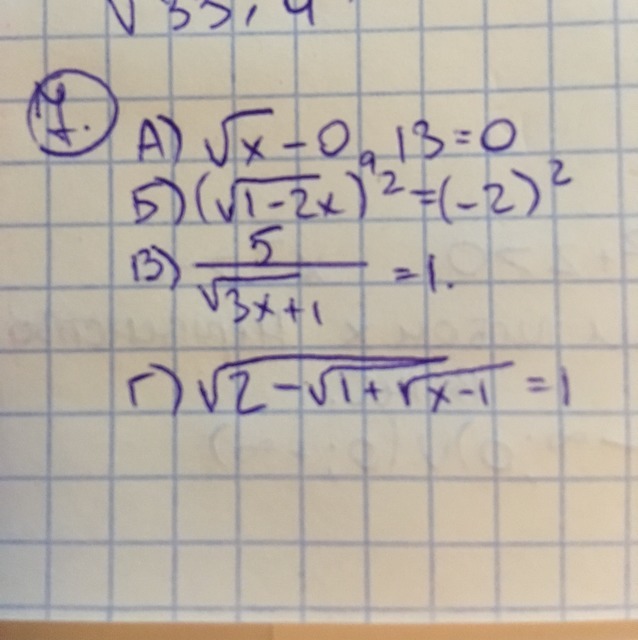 √33,4
7.
А) √x - 0,13 = 0
Б) (√1-2x)² = (-2)²
В) 5/√3x+1 = 1.
Г) √2-√1+√x-1 = 1